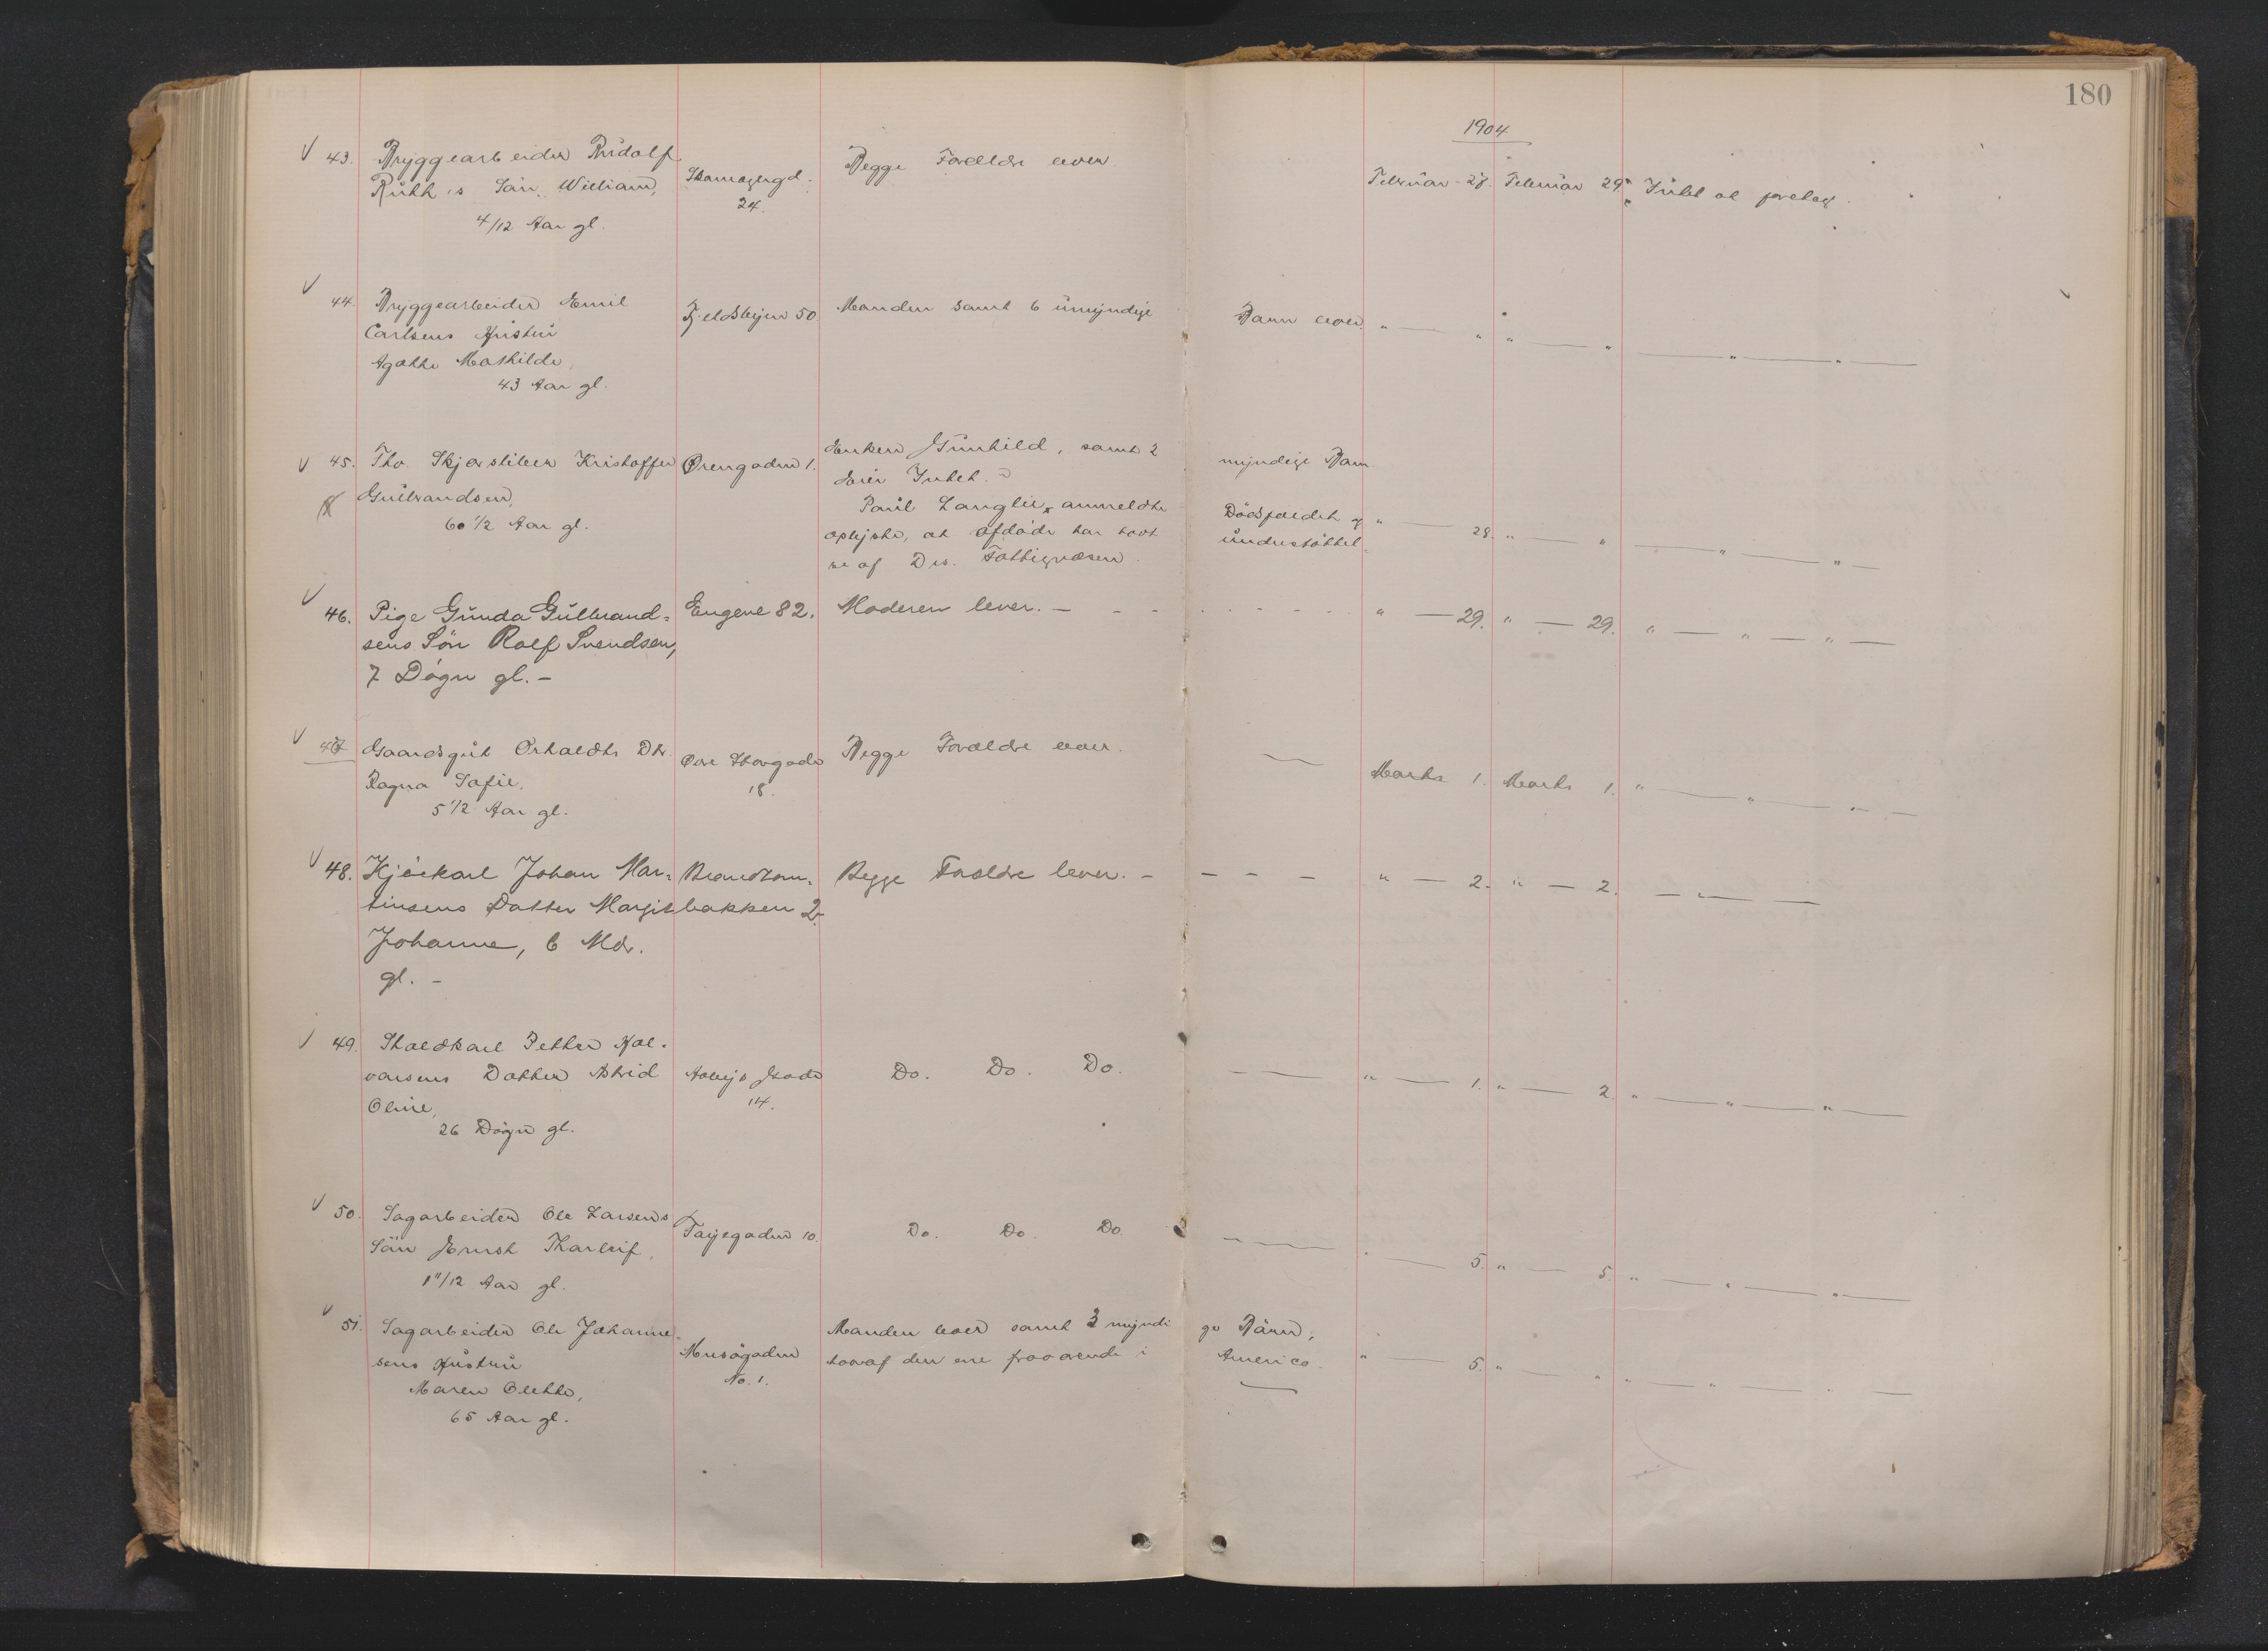 180
1904
43. Bryggearbeider Rudolf
Ruth's Sön William,
4/12 Aar gl.
24.
Begge Forældre lever
Februar 28. Februar 29. Intet at foretag.
44. Bryggearbeider Emil
Carlsens Hustru
Agathe Mathilde,
43 Aar gl.
50
Manden samt 6 umyndige Barn lever. " — " " — " — " — " —
45. Fho. Skjærsliber Kristoffer
Gulbrandsen,
60 1/2 Aar gl.
Örengaden 1.
Enken Gunhild, samt 2 myndige Barn
Eier Intet.
Paul Langlie anmeldte Dödsfaldet og
oplyste, at afdöde har havt understöttel-
se af Drs. Fattigvæsen.
" — 28. " — " — " — " —
46. Pige Gunda Gulbrand-
sens Sön Rolf Svendsen,
7 Dögn gl. —
Engene 82.
Moderen lever. —
" — 29. " — 29. " — " — " —
47 Gaardsgut Orhaldts Dtr.
Ragna Sofie,
5 1/2 Aar gl.
Övre Storgade
18.
Begge Forældre lever.
— Marts 1. Marts 1. " — " — " —
48. Kjörekarl Johan Mar-
tinsens Datter Margit
Johanne, 6 Mdr.
gl. —
bakken 2.
Begge Forældre lever. — — — —
" — 2. " — 2. — " — —
49. Staldkarl Petter Hal-
vorsens Datter Astrid
Oline,
26 Dögn gl.
Gade
14.
Do. Do. Do.
— " — 1. " — 2. " — " — " —
50. Sagarbeider Ole Larsens
Sön Ernst Thorleif,
1 11/12 Aar gl.
10.
Do. Do. Do.
— " — 5. " — 5. " — " — " —
51. Sagarbeider Ole Johanne-
sens Hustru
Maren Olette,
65 Aar gl.
No. 1.
Manden lever samt 3 myndige Börn,
hvoraf den ene fraværende i America.
" — 5. " — " " — " — " —